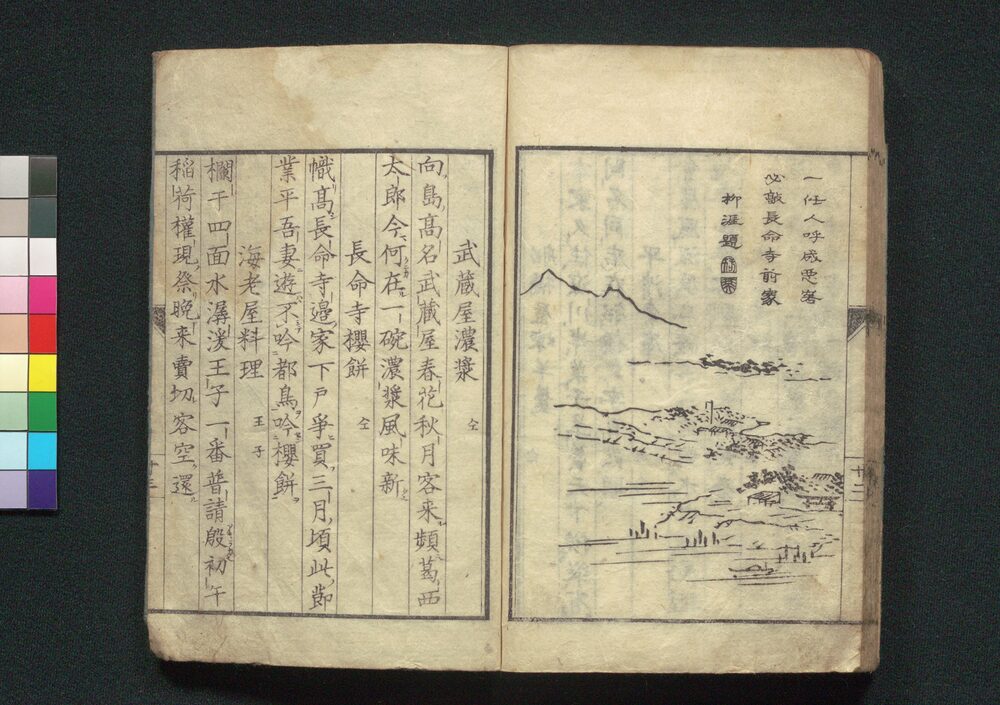 一任人呼感悪客
必敲長命寺前家
柳涯題
十二
武蔵屋濃漿 仝
向島高名武蔵屋春花秋月客来頻葛西
太郎今何在一碗濃漿風味新
長命寺櫻餅 仝
幟高長命寺邉家下戸爭買三月頃此節
業平吾妻遊不吟都鳥吟櫻餅
海老屋料理 王子
欄干四面水潺湲王子一番普請殷初午
稲荷權現祭晩来賣切客空還
十三